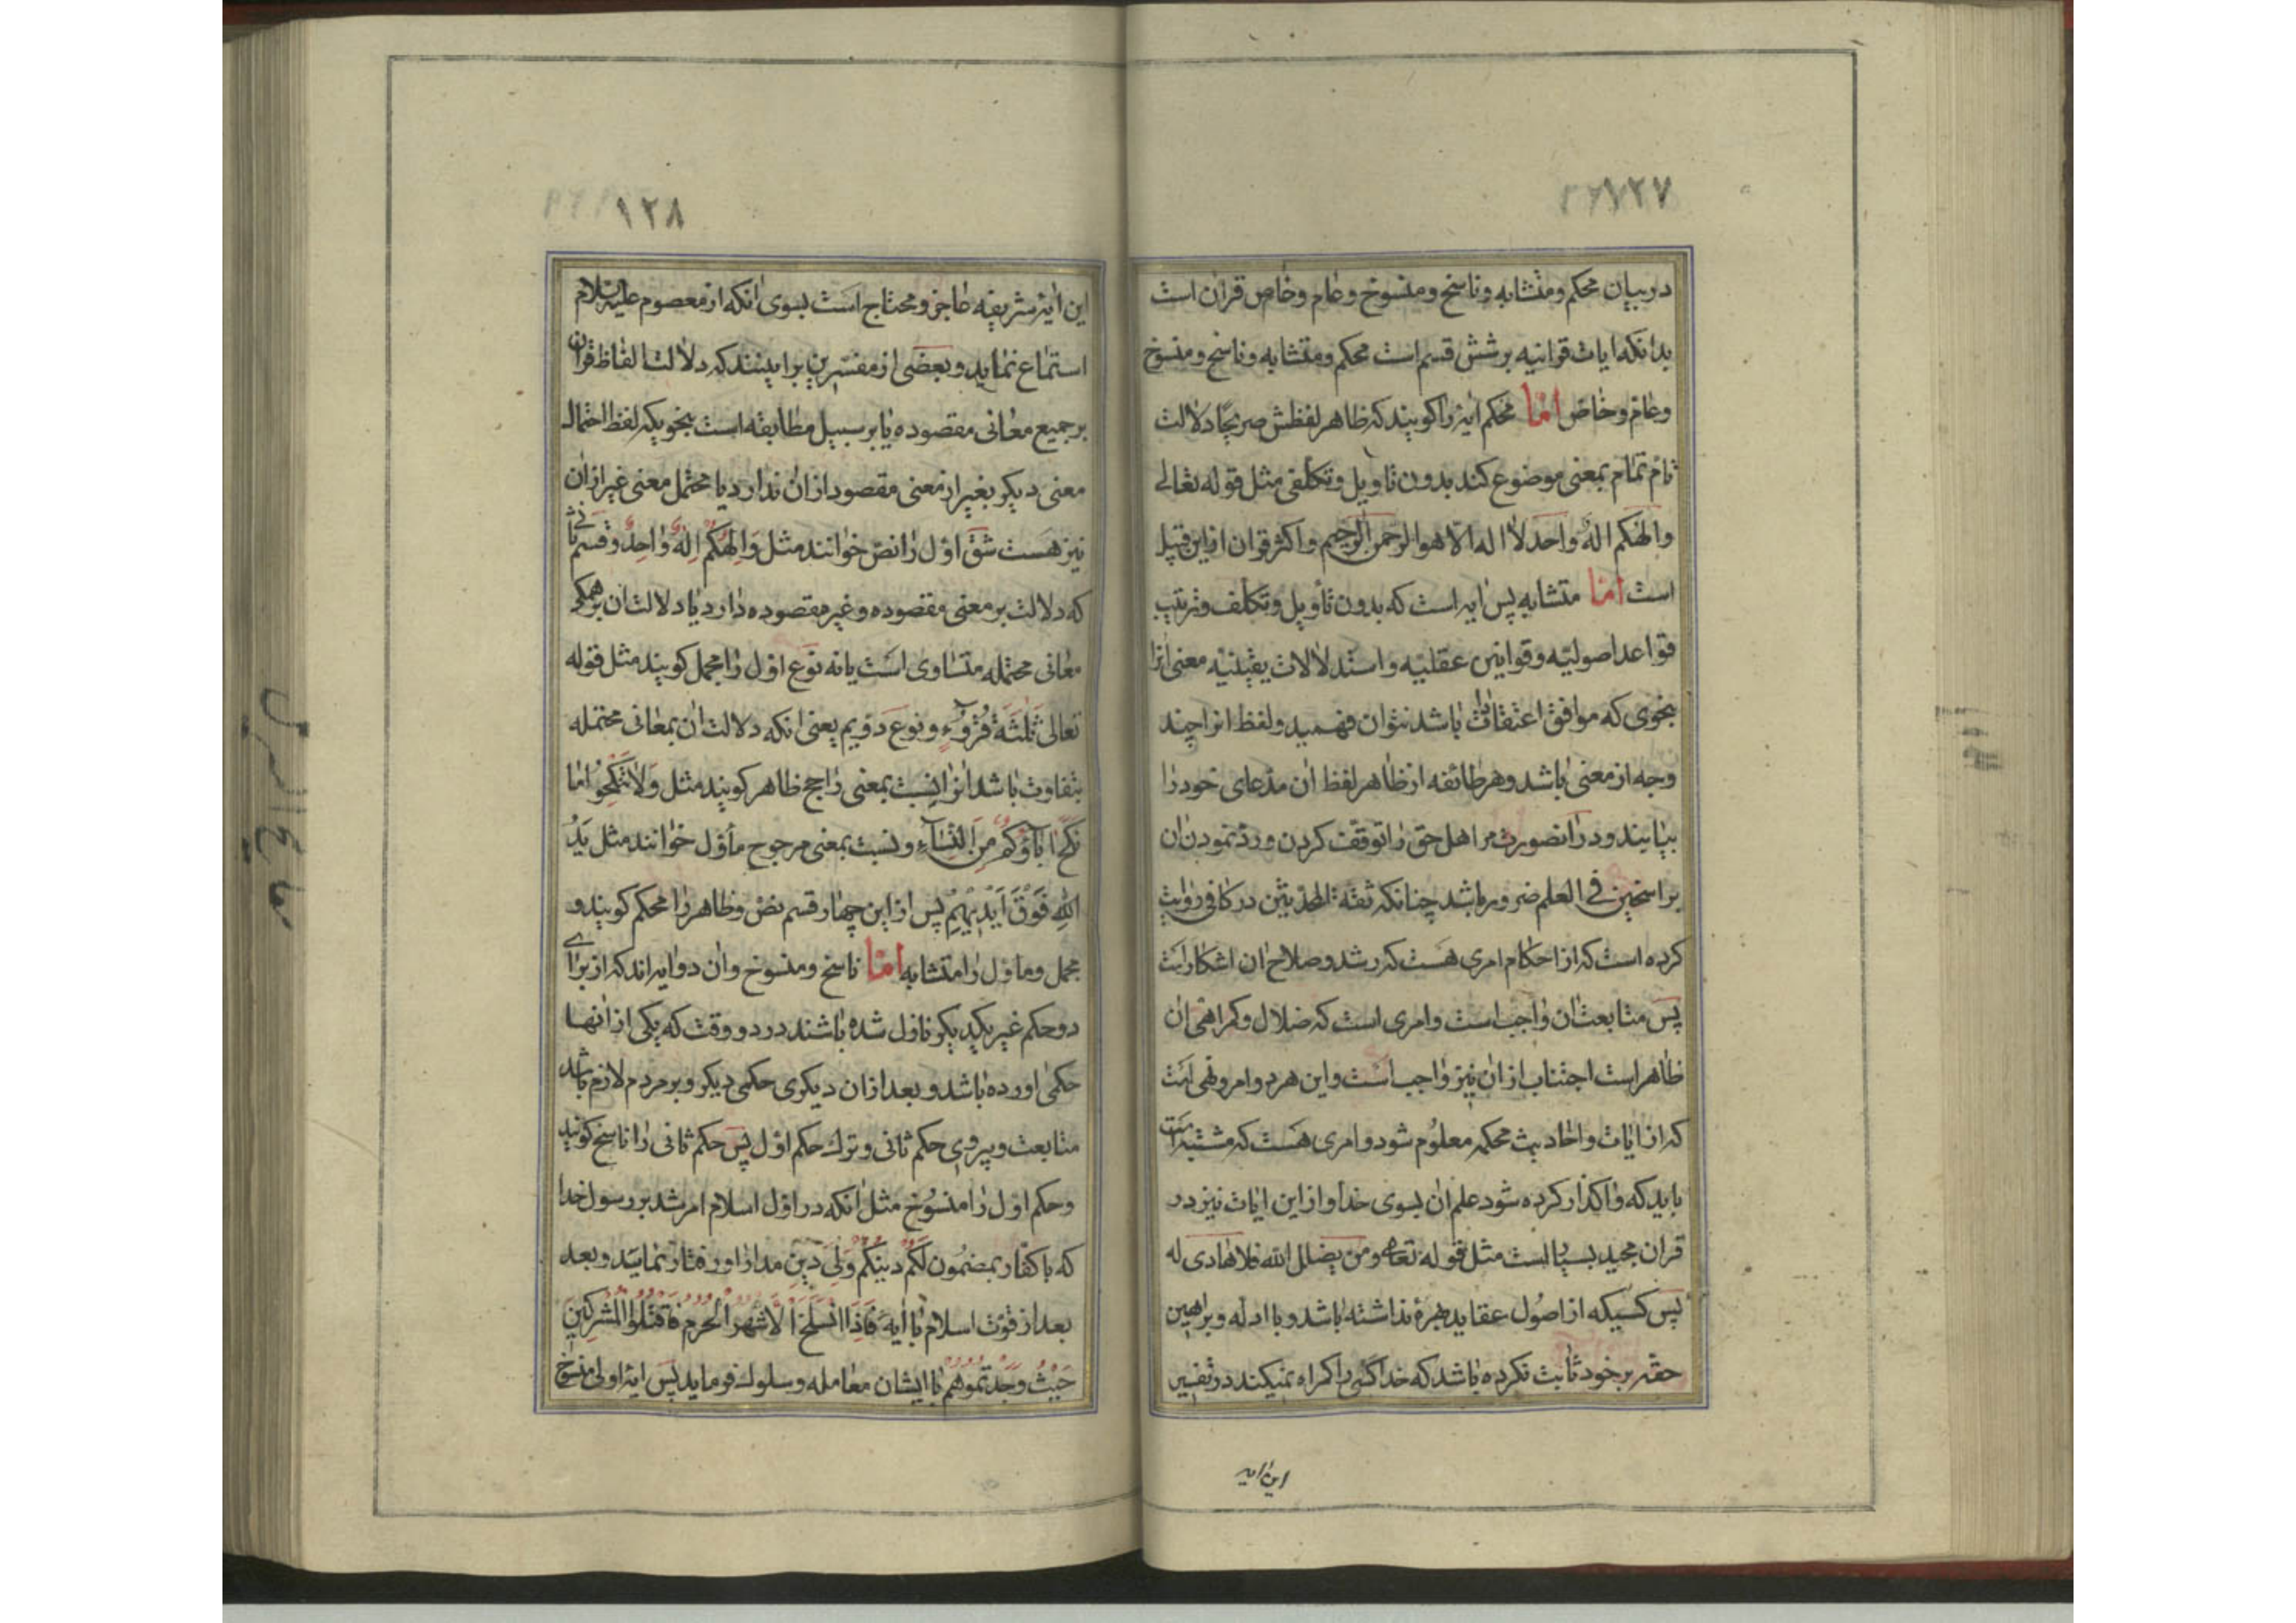 ۱۲۷
در بیان محکم و متشابه و ناسخ و منسوخ و عام و خاص قرآن است
بدانکه ایات قرانیه بر شش قسم است محکم و متشابه و ناسخ و منسوخ
و عام و خاص اما محکم ایۀ را کویند که ظاهر لفظش صریحًا دلالت
تام تمام بمعنی موضوع کند بدون تاویل و تکلفی مثل قوله تعالی
والهکم اله واحد لا اله الا هو الرحمن الرحیم و اکثر قران ازین قبیل
است اما متشابه پس ایه است که بدون تأویل و تکلف و ترتیب
قواعد اصولیه و قوانین عقلیه و استدلالات یقینیه معنی انرا
بنحوی که موافق اعتقادات باشد نتوان فهمید و لفظ انرا چند
وجه از معنی باشد و هر طائفه از ظاهر لفظ ان مدعای خود را
بیابند و در انصورت مر اهل حق را توقف کردن و رد نمودن ان
براسخین فی العلم ضرور باشد چنانکه ثقة المحدثین در کافی روایت
کرده است که از احکام امری هست که رشد و صلاح ان اشکار است
پس متابعت ان واجب است و امری است که ضلال و کمراهی ان
ظاهر است اجتناب از ان نیز واجب است و این هر دو امر و نهی است
که از ایات و احادیث محکمه معلوم شود و امری هست که مشتبه است
باید که واکذار کرده شود علم ان بسوی خدا و از این ایات نیز در
قران مجید بسیار است مثل قوله تعالی و من یضلل الله فلا هادی له
پس کسیکه از اصول عقاید بهرۀ نداشته باشد و با ادله و براهین
حقه بر خود ثابت نکرده باشد که خدا کسی را کمراه نمیکند در تفسیر
این ایه
۱۲۸
این ایۀ شریفه عاجز و محتاج است بسوی انکه از معصوم علیه السلام
استماع نماید و بعضی از مفسرین براینند که دلالت الفاظ قران
بر جمیع معانی مقصوده یا بر سبیل مطابقه است بنحویکه لفظ احتمال
معنی دیکر بغیر از معنی مقصود از ان ندارد یا محتمل معنی غیر از ان
نیز هست شق اول را نص خوانند مثل وَاِلٰهُكُمْ اِلٰهٌ وٰاحِدٌ و قسم ثانی
که دلالت بر معنی مقصوده و غیر مقصوده دارد یا دلالت ان بر همکی
معانی محتمله متساوی است یا نه نوع اول را مجمل کویند مثل قوله
تعالی ثَلٰثَةَ قُرُوٓءٍ و نوع دویم یعنی انکه دلالت ان بمعانی محتمله
بتفاوت باشد انرا نسبت بمعنی راجح ظاهر کویند مثل وَلٰا تَنْكِحُوا مٰا
نَكَحَ اٰبٰآؤُكُمْ مِنَ النِّسٰآءِ و نسبت بمعنی مرجوح مأول خوانند مثل یَدُ
اللهِ فَوْقَ اَیْدیٖهِمْ پس از این چهار قسم نص و ظاهر را محکم کویند و
مجمل و ماول را متشابه اما ناسخ و منسوخ و ان دو ایه اند که از برای
دو حکم غیر یکدیکر نازل شده باشند در دو وقت که یکی از انها
حکمی اورده باشد و بعد از ان دیکری حکمی دیکر و بر مردم لازم باشد
متابعت و پیروی حکم ثانی و ترک حکم اول پس حکم ثانی را ناسخ کویند
و حکم اول را منسوخ مثل انکه در اول اسلام امر شد بر رسول خدا
که با کفار بمضمون لَكُمْ دینُكُمْ وَلِیَ دینِ مدارا و رفتار نمایید و بعد
بعد از قوت اسلام با ایه فَاِذَا انْسَلَخَ الْاَشْهُرُ الْحُرُمُ فَاقْتُلُوا الْمُشْرِكینَ
حَیْثُ وَجَدْتُمُوهُمْ با ایشان معامله و سلوک فرماید پس ایۀ اولی منسوخ